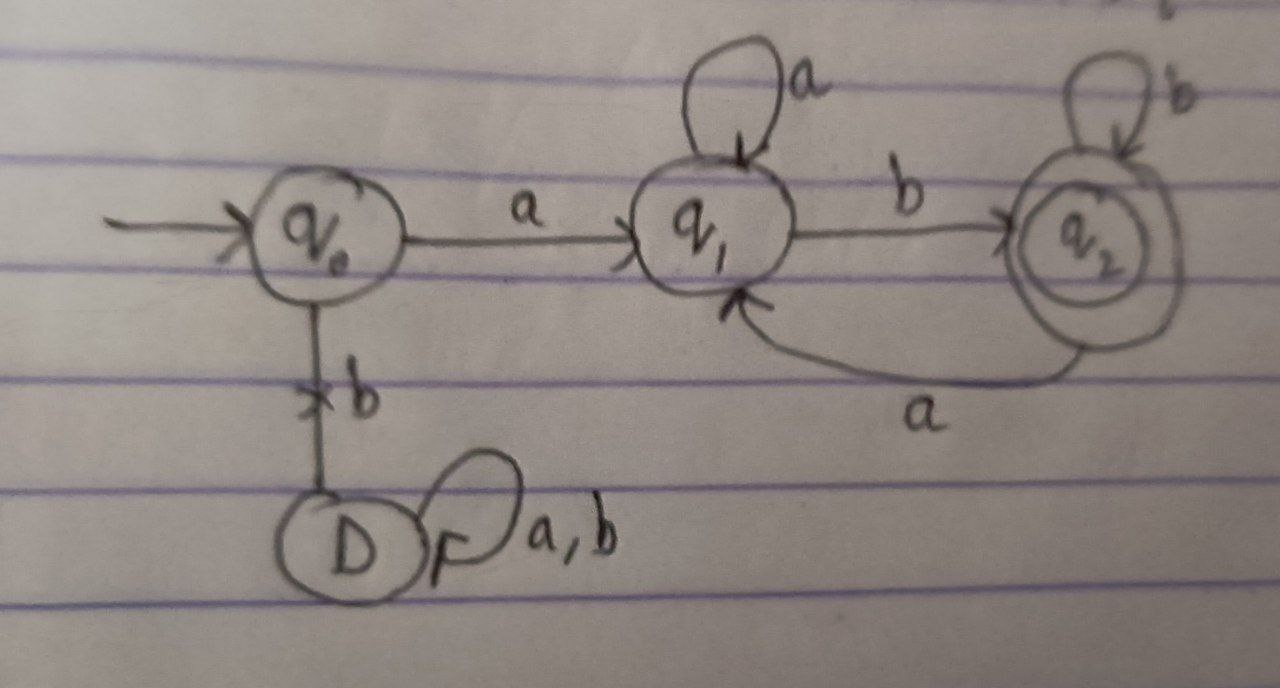 a
b
q₀
a
q₁
b
q₂
b
a
D
a, b